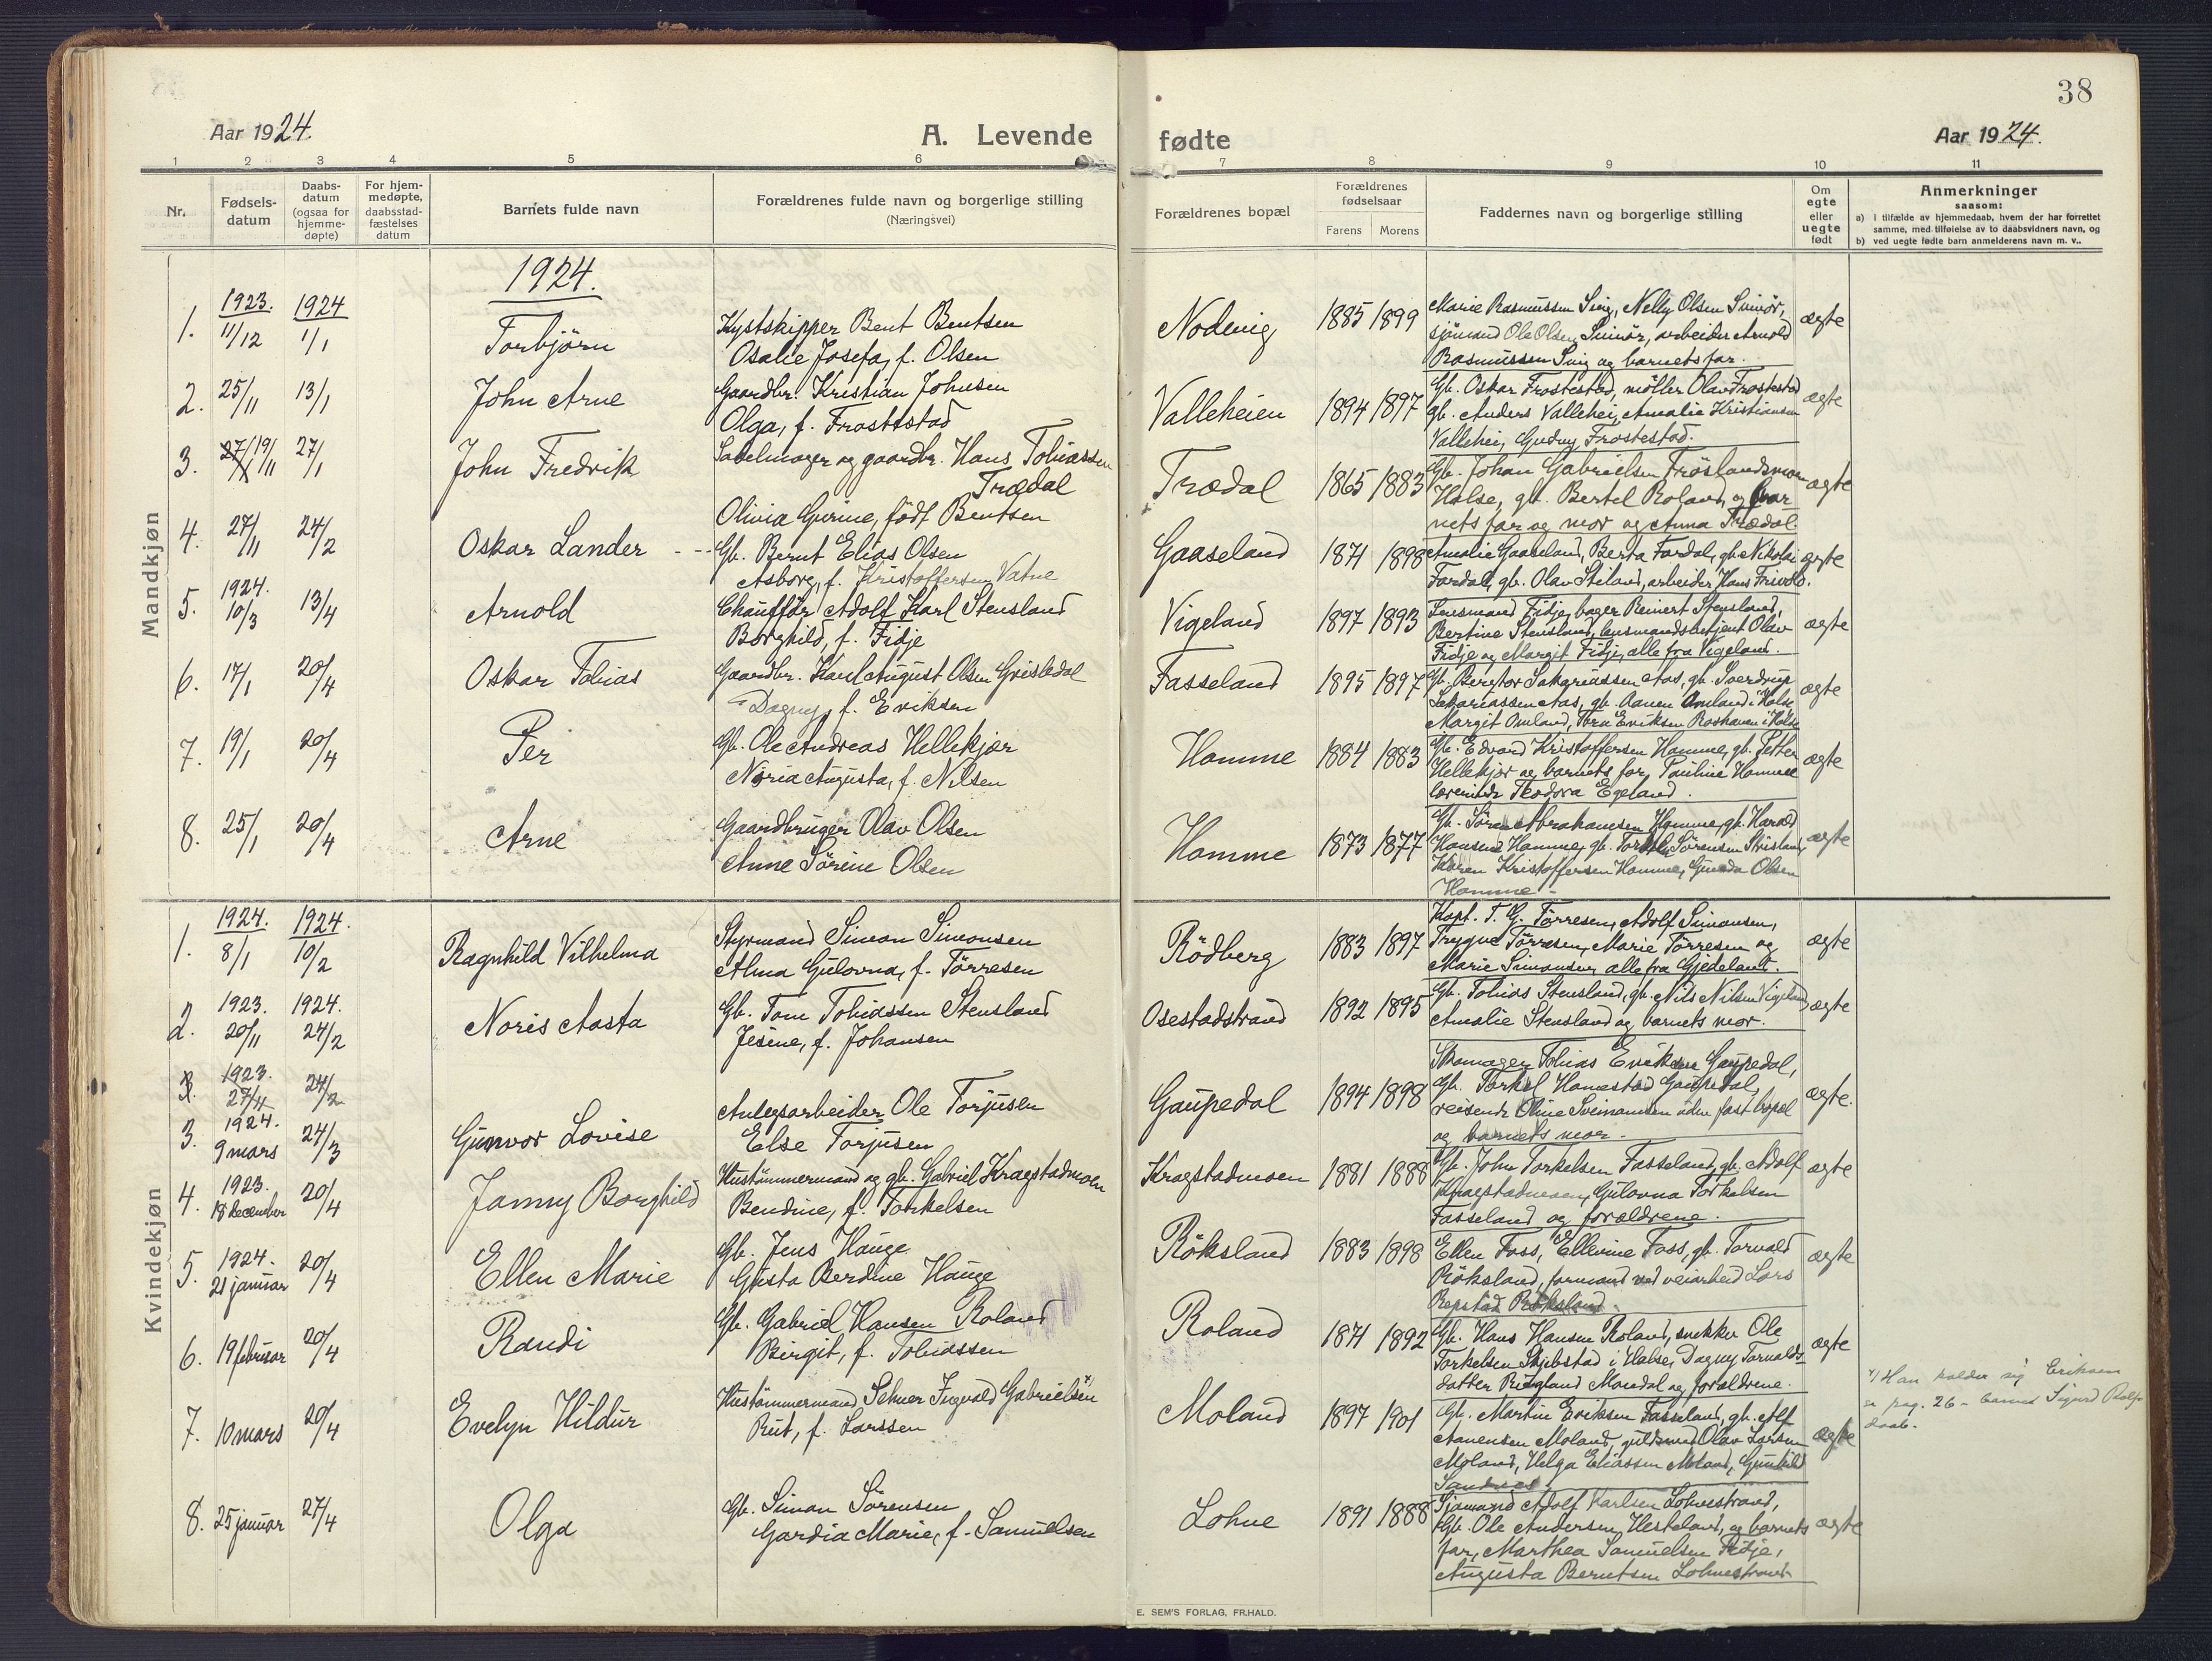 38
Aar 1924.
A. Levende fødte
Aar 1924.
1 2 3 4 5 6 7 8 9 10 11
Nr.
Fødsels-
datum
Daabs-
datum
(ogsaa for
hjemme-
døpte)
For hjem-
medøpte,
daabsstad-
fæstelses
datum
Barnets fulde navn
Forældrenes fulde navn og borgerlige stilling
(Næringsvei)
Forældrenes bopæl
Forældrenes
fødselsaar
Farens Morens
Faddernes navn og borgerlige stilling
Om
egte
eller
uegte
født
Anmerkninger
saasom:
a) i tilfælde av hjemmedaab, hvem der har forrettet
samme, med tilføielse av to daabsvidners navn, og
b) ved uegte fødte barn anmelderens navn m. v..
Mandkjøn
1924.
1. 1923. 11/12 1924 1/1 Torbjörn
Kystskipper Bent Bentsen
Osalie Josefa, f. Olsen
Nodevig 1885 1899
Marie Rasmussen Svig, Nelly Olsen Svinör,
sjömand Ole Olsen Svinör, arbeider Arnold
Rasmussen Svig og barnets far.
ægte
2. 25/11 13/1 John Arne
Gaardbr. Kristian Johnsen
Olga, f. Frostestad
Valleheien 1894 1897
Gb. Oskar Frostestad, möller Olav Frostestad
gb. Anders Vallehei, Amalie Kristiansen
Vallehei, Gudny Frostestad.
ægte
3. 27/ 19/11 27/1 John Fredrik
Sadelmager og gaardbr. Hans Tobiassen
Trædal
Olivia Gurine, født Bentsen
Trædal 1865 1883
Gb. Johan Gabrielsen Fröslandsmoen
Halse, gb. Bertel Roland og bar-
nets far og mor og Anna Trædal.
ægte
4. 27/11 24/2 Oskar Lander
Gb. Bernt Elias Olsen
Asborg, f. Kristoffersen Vatne
Gaaseland 1871 1898
Amalie Gaaseland, Berta Fardal, gb. Nikolai
Fardal, gb. Olav Stiland, arbeider Hans Frivold.
ægte
5. 1924. 10/3 13/4 Arnold
Chauffør Adolf Karl Stensland
Borghild, f. Fidje
Vigeland 1897 1893
Lensmand Fidje, bager Reinert Stensland,
Bertine Stensland, lensmandsbetjent Olav
Fidje og Margit Fidje, alle fra Vigeland.
ægte
6. 17/1 20/4 Oskar Tobias
Gaardbr. Karl August Olsen Grisledal
Dagny, f. Eriksen
Fasseland 1895 1897
Gb. Bergtor Sakariassen Aas, gb. Sverdrup
Sakariassen Aas, gb. Aanen Omland i Halse
Margit Omland, Tora Eriksen Roshaven i Halse
ægte
7. 19/1 20/4 Per
Gb. Ole Andreas Hellekjær
Noria Augusta, f. Nilsen
Homme 1884 1883
Gb. Edvard Kristoffersen Homme, gb. Petter
Hellekjær og barnets far, Pauline Homme
lærerinde Teodora Egeland.
ægte
8. 25/1 20/4 Arne
Gaardbruger Olav Olsen
Anne Sörine Olsen
Homme 1873 1877
Gb. Sören Abrahamsen Homme, gb. Harald
Hansen Homme, gb. Torkel Sörensen
Karen Kristoffersen Homme, Gunda Olsen
Homme
ægte
Kvindekjøn
1. 1924. 8/1 1924. 10/2 Ragnhild Vilhelma
Styrmand Simon Simonsen
Alma Gulovna, f. Törresen
Rödberg 1883 1897
Kapt. T. G. Törresen, Adolf Simonsen,
Trygve Törresen, Marie Törresen og
Marie Simonsen, alle fra Gjedeland.
ægte
2. 1923. 20/11 1924. 24/2 Noris Aasta
Gb. Tom Tobiassen Stensland
Jesine, f. Johansen
Osestadstrand 1892 1895
Gb. Tobias Stensland, gb. Nils Nilsen Vigeland,
Amalie Stensland og barnets mor.
ægte
3. 1923. 27/11 24/2
3. 1924. 9 mars 24/3 Gunvor Lovise
Anlegsarbeider Ole Torjusen
Else Torjusen
Gaupedal 1894 1898
Skomager Tobias Eriksen Gaupedal,
Gb. Torkel Homestad Gaupedal,
reisende Oline Sveinansen uden fast bopæl
og barnets mor.
ægte.
4. 1923. 18 december 20/4 Janny Borghild
Hustömmermand og gb. Gabriel Kragstadmoen
Bendine, f. Torkelsen
Kragstadmoen 1881 1888
Gb. John Torkelsen Fasseland, gb. Adolf
Kragstadmoen, Gulovna Torkelsen
Fasseland og forældrene.
ægte
5. 1924. 21 januar 20/4 Ellen Marie
Gb. Jens Hauge
Gusta Berdine Hauge
Röksland 1883 1898
Ellen Foss, Ellevine Foss, gb. Torvald
Röksland, formand ved veiarbeid Lars
Repstad Röksland.
ægte
6. 19 februar 20/4 Randi
Gb. Gabriel Hansen Roland
Birgit, f. Tobiassen
Roland 1871 1892
Gb. Hans Hansen Roland, snekker Ole
Torkelsen Skjebstad i Halse, Dagny Torvalds-
datter Mandal og forældrene.
ægte
7. 10 mars 20/4 Evelyn Hildur
Hustömmermand Selmer Ingvald Gabrielsen x)
Rut, f. Larssen
Moland 1897 1901
Gb. Martin Eriksen Fasseland, gb. Alf
Aanensen Moland, guldsmed Olav Larsen
Moland, Helga Eliassen Moland, Gunhild
Sandnes.
ægte
x) Han kalder sig Eriksen
se pag. 26 - barnet Sigurd Rolfs
daab.
8. 25 januar 27/4 Olga
Gb. Simon Sörensen
Gardia Marie, f. Samuelsen
Lohne 1891 1888
Sjömand Adolf Karlsen Lohnestrand,
Gb. Ole Andersen Hesteland, og barnets
far, Marthea Samuelsen Fidje,
Augusta Berntsen Lohnestrand
ægte
E. SEM'S FORLAG, FR.HALD.